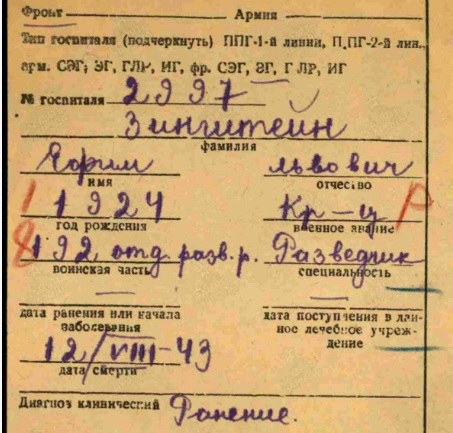 Фронт Армия
Тип госпиталя (подчеркнуть) ППГ-1-й линии, П,ПГ-2-й лин.,
арм. СЭГ; ЭГ, ГЛР, ИГ, фр. СЭГ, ЭГ, ГЛР, ИГ
№ госпиталя 2997
Зингштейн
фамилия
Ефрим львович
имя отчество
1 1924 Кр-ц Р
год рождения военное звание
8 192 отд. разв. р. Разведчик
воинская часть специальность
дата ранения или начала дата поступления в дан-
заболевания ное лечебное учреж-
дение
12/VIII-43
дата смерти
Диагноз клинический Ранение.